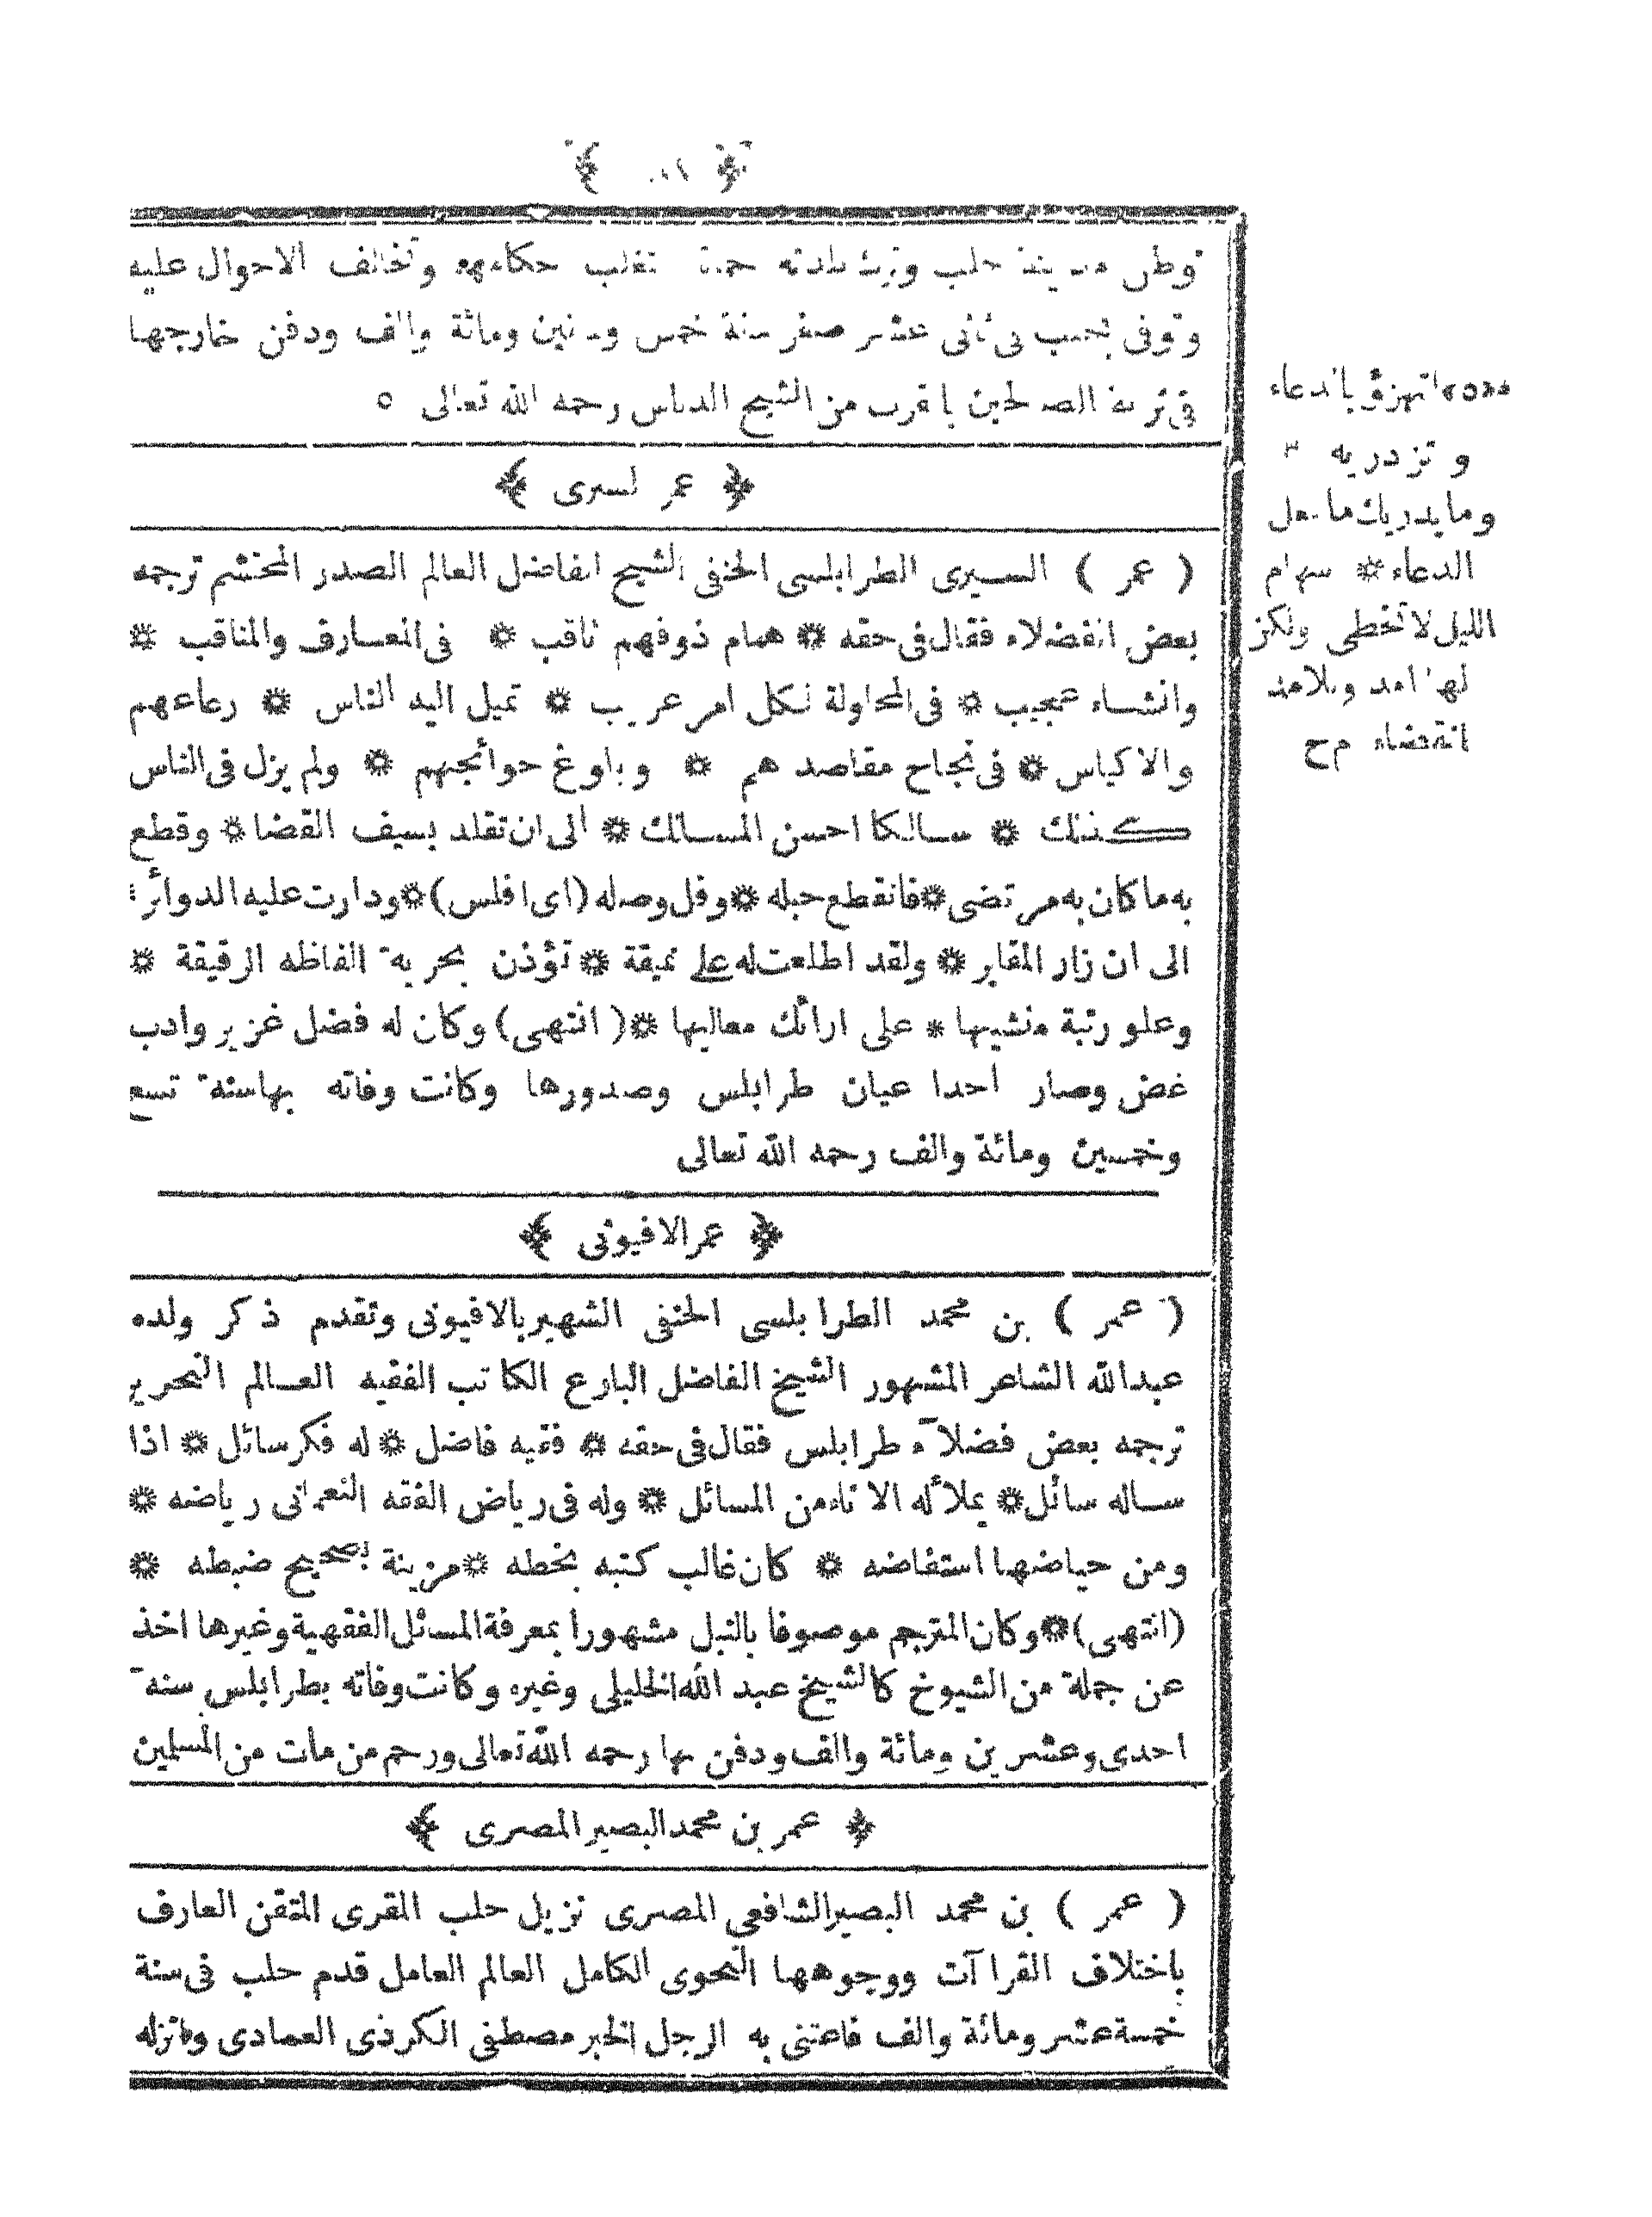 توطن مدينة حلب وترك بلدته تقلب حكامهم وتخالف الاحوال عليه
وتوفى بحلب فى ثانى عشر صفر سنة خمس ومائة والف ودفن خارجها
فى تربة الصالحين بالقرب من الشيخ الدباس رحمه الله تعالى
﴿ عمر السيرى ﴾
( عمر ) السيرى الطرابلسى الحنفى الشيخ الفاضل العالم الصدر المحتشم ترجمه
بعض الفضلاء فقال فى حقه * همام ذوفهم ثاقب * فى المعارف والمناقب *
وانشاء عجيب * فى المحاولة لكل امر غريب * تميل اليه الناس * رعاعهم
والاكياس * فى نجاح مقاصدهم * وبلوغ حوائجهم * ولم يزل فى الناس
كذلك * سالكا احسن المسالك * الى ان تقلد بسيف القضا * وقطع
به ما كان به مرتضى * فانقطع حبله * وفل وصله (اى افلس) * ودارت عليه الدوائر *
الى ان زار المقابر * ولقد اطلعت له على نميقة * تؤذن بحرية الفاظه الرقيقة *
وعلو رتبة منشيها * على ارائك معاليها * ( انتهى ) وكان له فضل غزير وادب
غض وصار احدا عيان طرابلس وصدورها وكانت وفاته بها سنة تسع
وخمسين ومائة والف رحمه الله تعالى
﴿ عمر الافيونى ﴾
( عمر ) بن محمد الطرابلسى الحنفى الشهير بالافيونى وتقدم ذكر ولده
عبدالله الشاعر المشهور الشيخ الفاضل البارع الكاتب الفقيه العالم النحرير
ترجمه بعض فضلآء طرابلس فقال فى حقه * فقيه فاضل * له فكر سائل * اذا
ساله سائل * يملأ له الاناء من المسائل * وله فى رياض الفقه النعمانى رياضه *
ومن حياضها استفاضه * كان غالب كتبه بخطه * مزينة بصحيح ضبطه *
(انتهى) * وكان المترجم موصوفا بالنبل مشهورا بمعرفة المسائل الفقهية وغيرها اخذ
عن جملة من الشيوخ كالشيخ عبد الله الخليلى وغيره وكانت وفاته بطرابلس سنة
احدى وعشرين ومائة والف ودفن بها رحمه الله تعالى ورحم من مات من المسلمين
﴿ عمر بن محمد البصير المصرى ﴾
( عمر ) بن محمد البصير الشافعى المصرى نزيل حلب المقرى المتقن العارف
باختلاف القراآت ووجوهها النحوى الكامل العالم العامل قدم حلب فى سنة
خمسة عشر ومائة والف فاعتنى به الرجل الخير مصطفى الكرذى العمادى وانزله
اتهزؤ بالدعاء
وتزدريه ٣
وما يدريك ما فعل
الدعاء * سهام
الليل لا تخطى ولكن
لها امد وللامد
انقضاء م ح